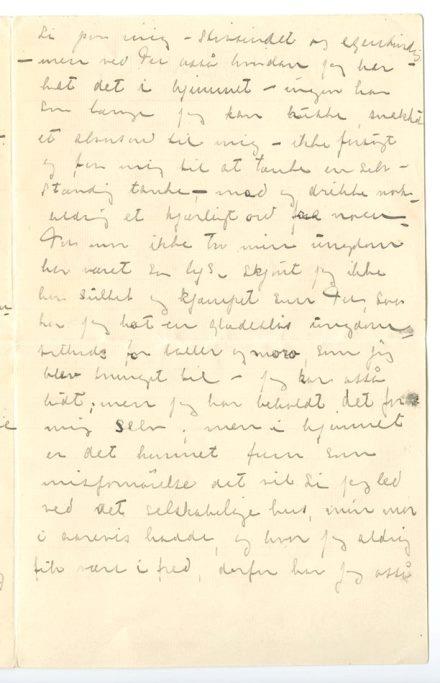 Di paa mig – stivsindet og egensindig
– men ved Du også hvordan jeg har
hat det i hjemmet – ingen har
saa længe jeg kan huske, snakket
et alvorsord til mig – ikke forsøgt
og faa mig til at tænke en selv-
stændig tanke, – mad og drikke nok –
aldrig et kjærligt ord fra noen –
Du maa ikke tro min ungdom
har været saa lys – skjønt jeg ikke
har sultet og kjæmpet som Du, saa
har jeg hat en gledesløs ungdom
for baller og moro som jeg
blev tvunget til – jeg har også
lidt; men jeg har beholdt det for
mig selv; men i hjemmet
er det kommet frem som
misfornøielse det vil si jeg led
ved det selskabelige hus, min mor
i aarevis hadde, og hvor jeg aldrig
fik være i fred, derfor har jeg også